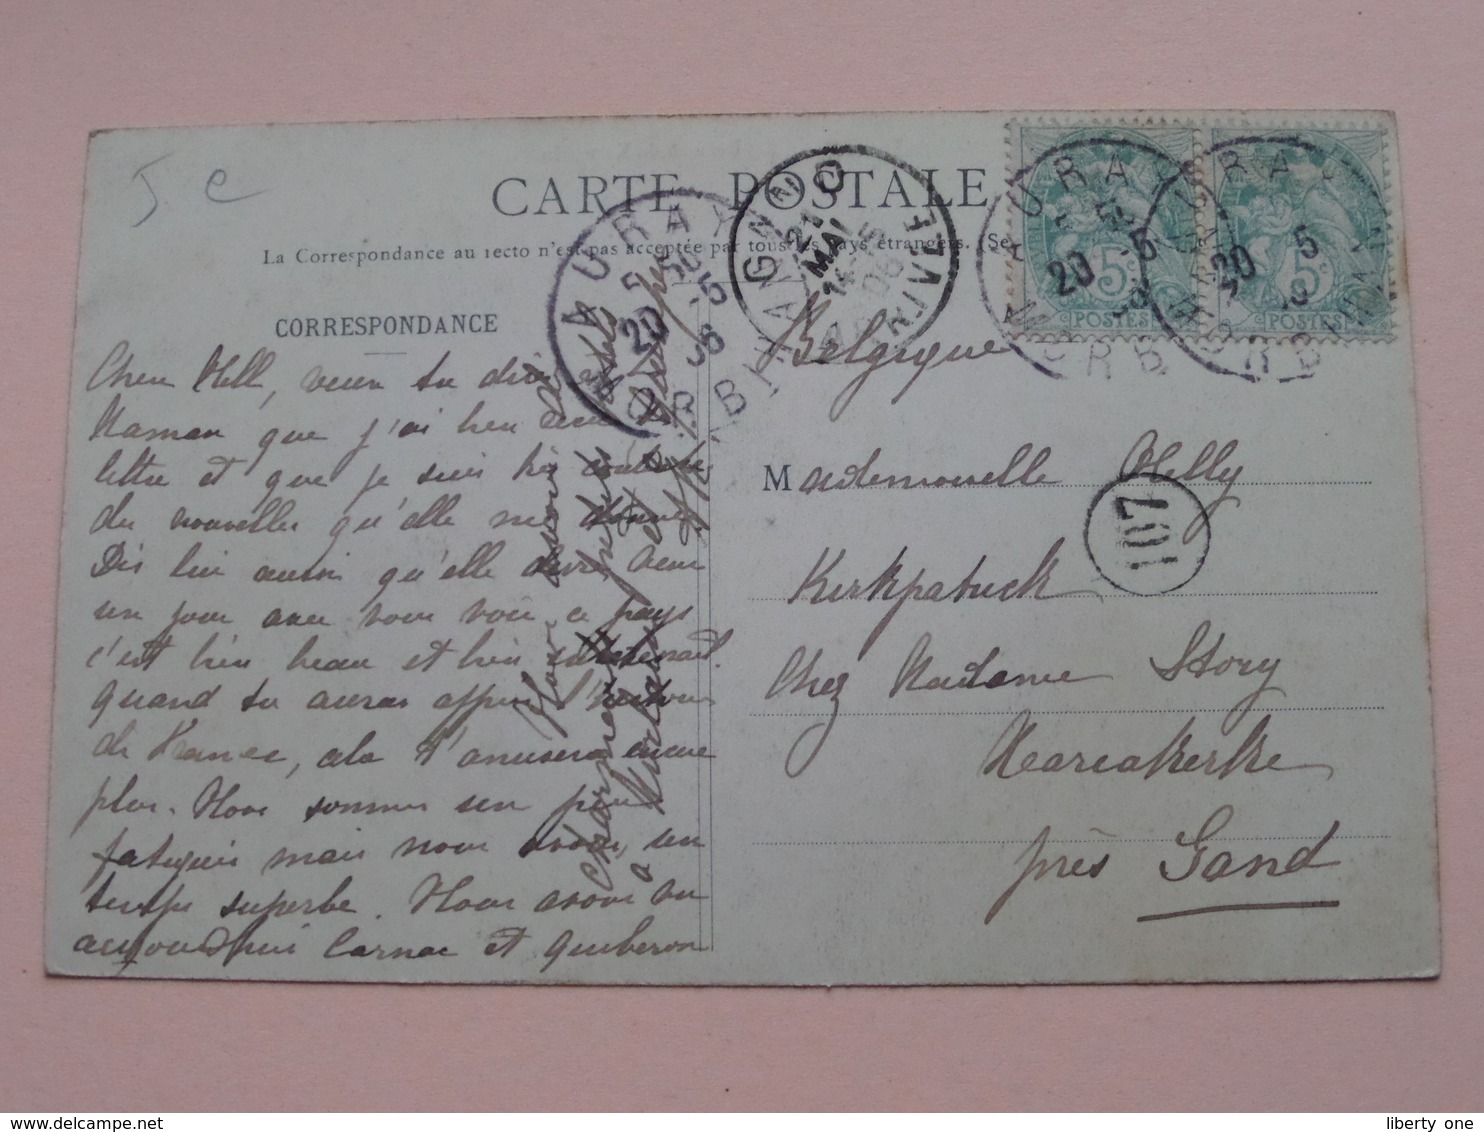 J. C
CARTE POSTALE
La Correspondance au recto n'est pas acceptée par tous les pays étrangers. (Se
CORRESPONDANCE
Belgique
Mademoiselle Nelly
Kirkpatrick
Chez Madame Story
Mariakerke
près Gand
107
AURAY
20 -5
MORBIHAN
GAND
21 MAI
ARRIVÉE
AURAY
20 -5
5c
POSTES
MORBIHAN
AURAY
20 5
5c
POSTES
MORBIHAN
Chère Nell, veux tu dire
Maman que j'ai bien
lettre et que je suis très
des nouvelles qu'elle me donne
Dis lui aussi qu'elle devra venir
un jour avec vous voir ce pays
c'est bien beau et bien
quand tu auras appris l'histoire
de France, cela t'amusera encore
plus. Nous sommes un peu
fatigués mais nous avons un
temps superbe. Nous avons vu
aujourd'hui Carnac et Quiberon
Nous avons
liberty one